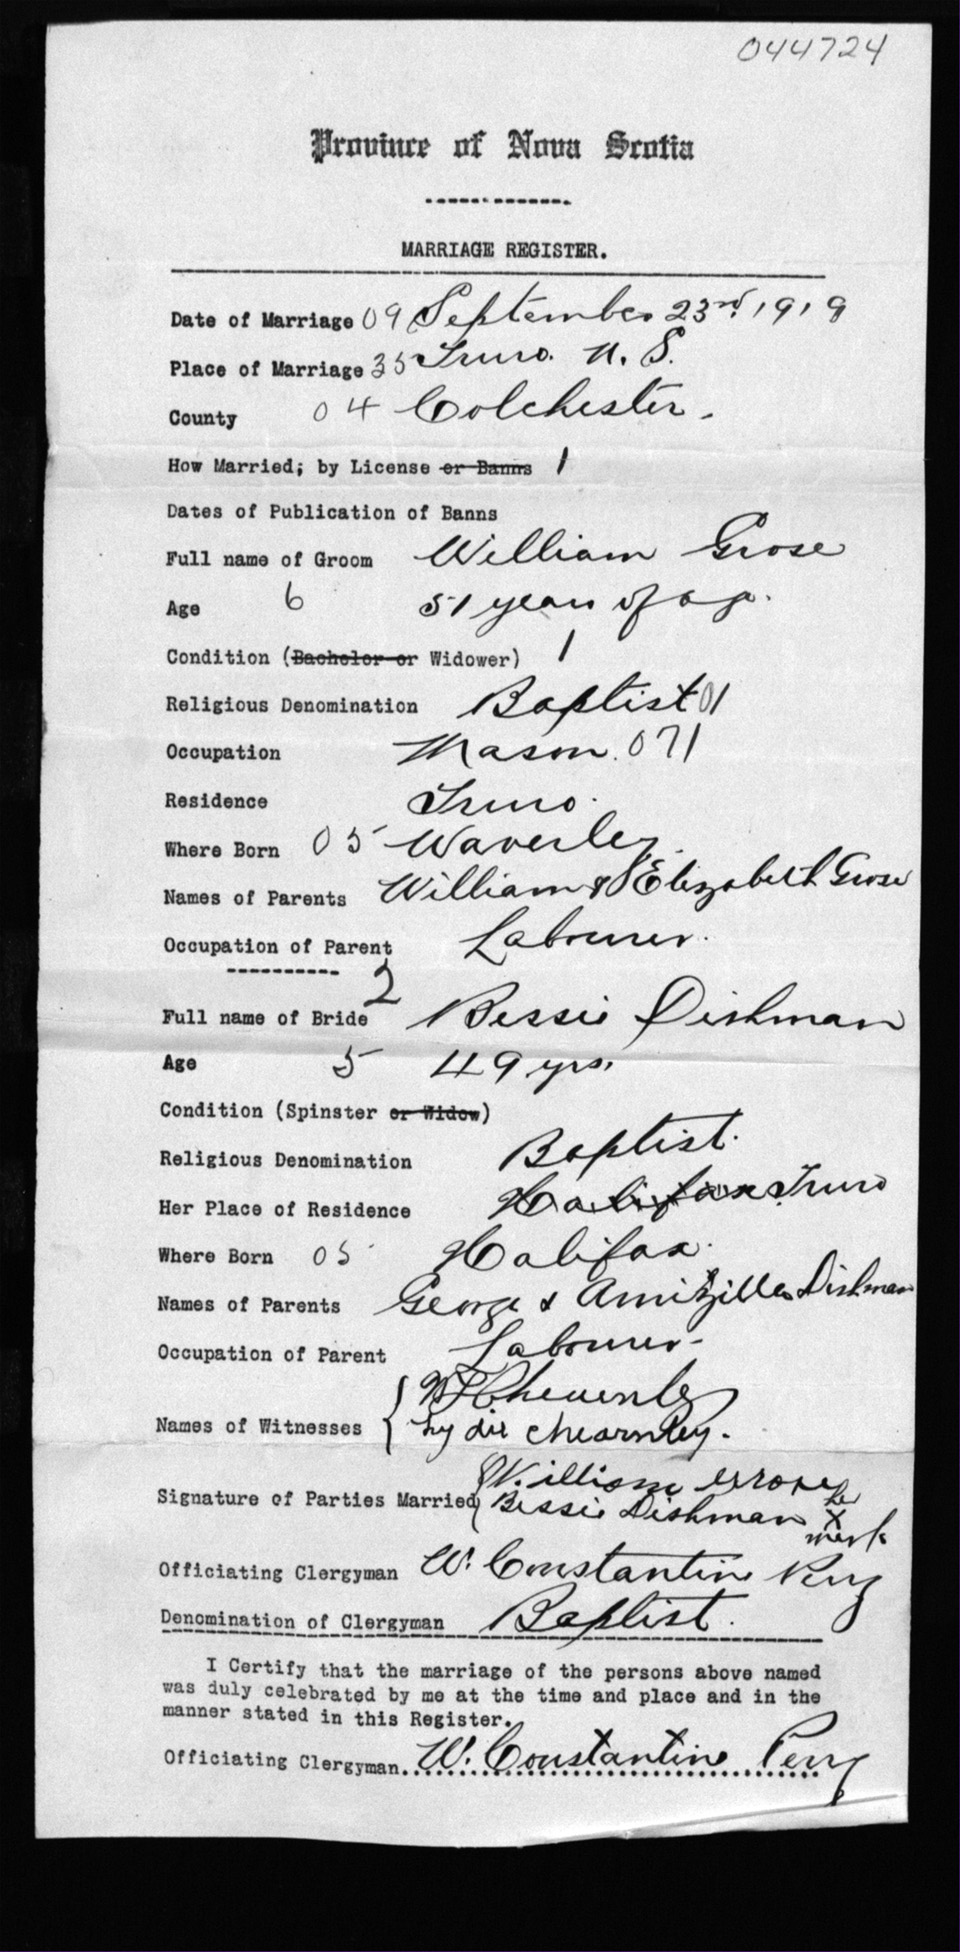 044724
Province of Nova Scotia
MARRIAGE REGISTER.
Date of Marriage 09 September 23rd. 1919
Place of Marriage 35 Truro. N. S.
County 04 Colchester.
How Married; by License or Banns 1
Dates of Publication of Banns
Full name of Groom William Grose
Age 6 51 years of age.
Condition (Bachelor or Widower) 1
Religious Denomination Baptist 01
Occupation Mason. 071
Residence Truro.
Where Born 05 Waverley.
Names of Parents William & Elizabeth Grose
Occupation of Parent Labourer.
2
Full name of Bride Bessie Dishman
Age 5 49 yrs.
Condition (Spinster or Widow)
Religious Denomination Baptist.
Her Place of Residence Halifax Truro
Where Born 05 Halifax.
Names of Parents George & Dishman
Occupation of Parent Labourer-
Names of Witnesses
chearnley.
Signature of Parties Married William
Bessie Dishman her X mark
Officiating Clergyman W. Constantine Perry
Denomination of Clergyman Baptist.
I Certify that the marriage of the persons above named
was duly celebrated by me at the time and place and in the
manner stated in this Register.
Officiating Clergyman. W. Constantine Perry